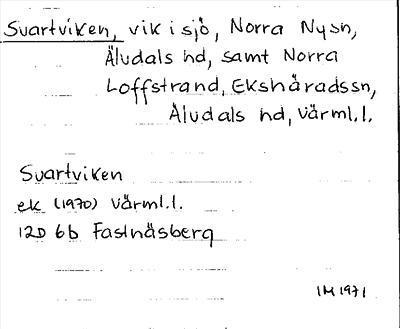 Svartviken, vik i sjö, Norra Nysn,
Älvdals hd, samt Norra
Loffstrand, Ekshäradssn,
Älvdals hd, Värml.l.
Svartviken
ek (1970) Värml.l.
12D 6b Fastnäsberg
IM 1971